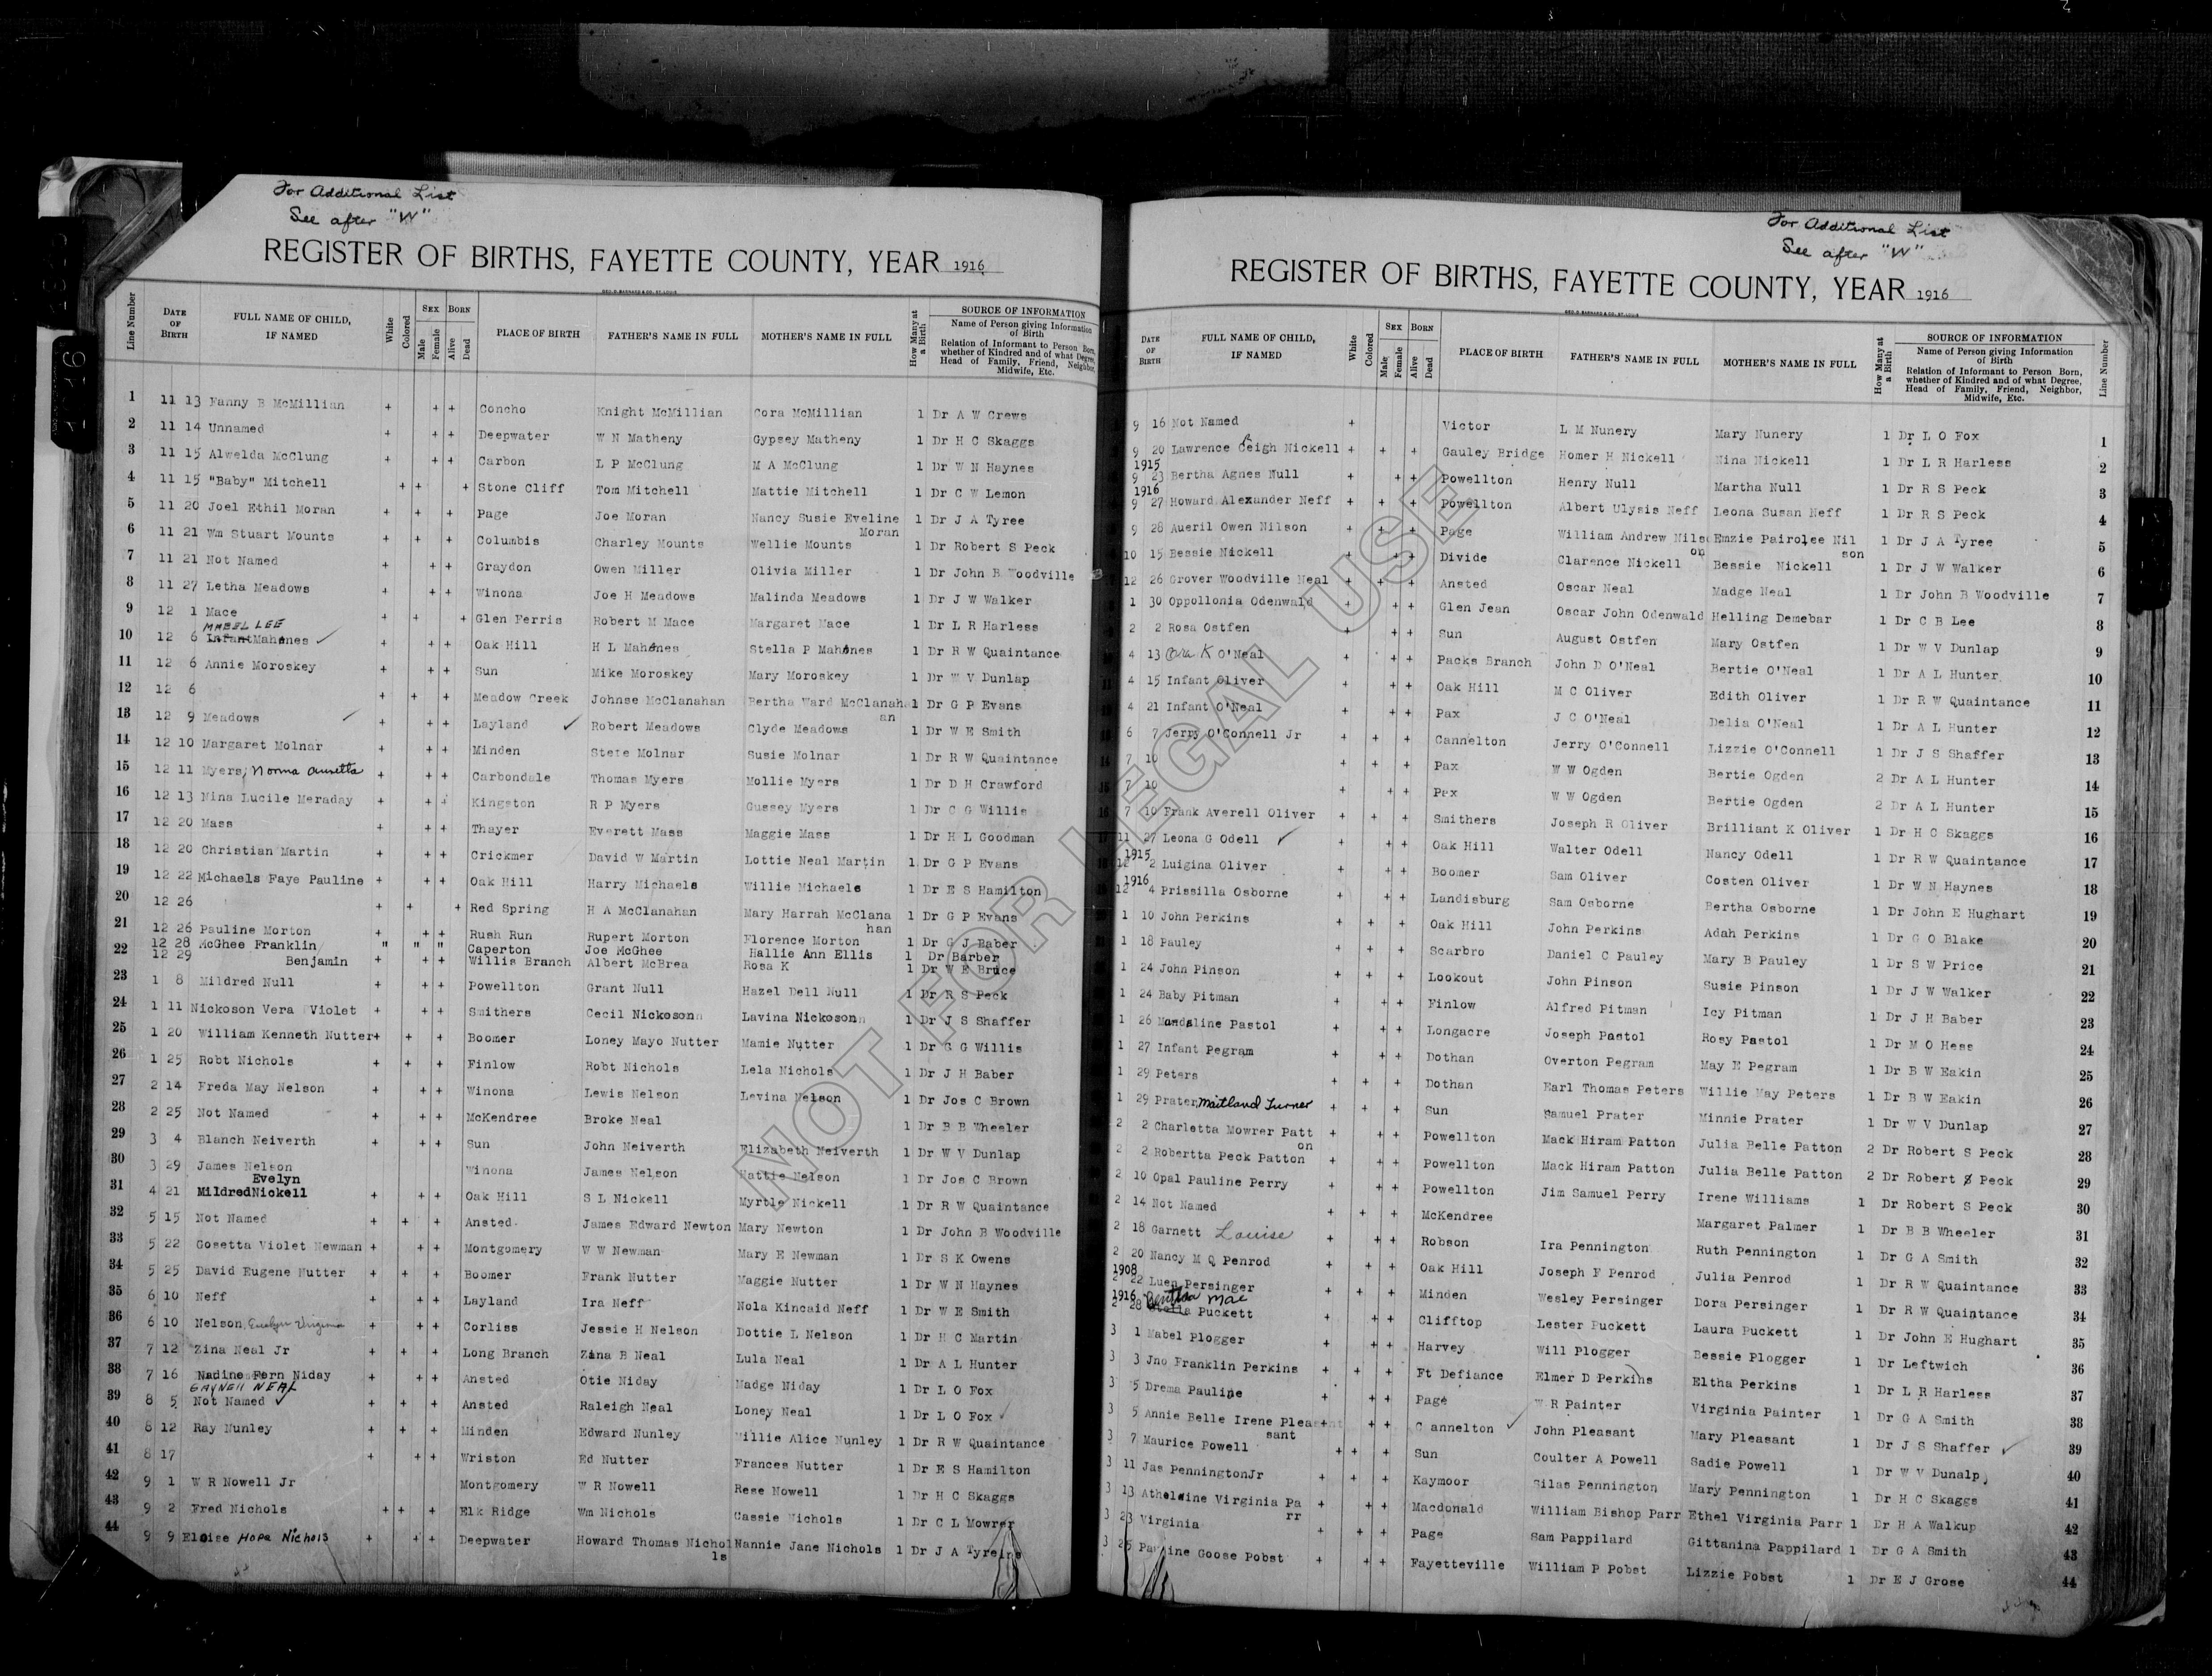 For Additional List
See after "W"
REGISTER OF BIRTHS, FAYETTE COUNTY, YEAR 1916
GEO. D. BARNARD & CO. ST. LOUIS
Line Number DATE OF BIRTH FULL NAME OF CHILD, IF NAMED White Colored SEX Male Female BORN Alive Dead PLACE OF BIRTH FATHER'S NAME IN FULL MOTHER'S NAME IN FULL How Many at a Birth SOURCE OF INFORMATION
Name of Person giving Information of Birth
Relation of Informant to Person Born, whether of Kindred and of what Degree, Head of Family, Friend, Neighbor, Midwife, Etc.
1 11 13 Fanny B McMillian + + + Concho Knight McMillian Cora McMillian 1 Dr A W Crews
2 11 14 Unnamed + + + Deepwater W N Matheny Gypsey Matheny 1 Dr H C Skaggs
3 11 15 Alwelda McClung + + + Carbon L P McClung M A McClung 1 Dr W N Haynes
4 11 15 "Baby" Mitchell + + + Stone Cliff Tom Mitchell Mattie Mitchell 1 Dr C W Lemon
5 11 20 Joel Ethil Moran + + + Page Joe Moran Nancy Susie Eveline Moran 1 Dr J A Tyree
6 11 21 Wm Stuart Mounts + + + Columbis Charley Mounts Wellie Mounts 1 Dr Robert S Peck
7 11 21 Not Named + + + Graydon Owen Miller Olivia Miller 1 Dr John B Woodville
8 11 27 Letha Meadows + + + Winona Joe H Meadows Malinda Meadows 1 Dr J W Walker
9 12 1 Mace + + + Glen Ferris Robert M Mace Margaret Mace 1 Dr L R Harless
MABEL LEE
10 12 6 Infant Mahones ✓ + + + Oak Hill H L Mahones Stella P Mahones 1 Dr R W Quaintance
11 12 6 Annie Moroskey + + + Sun Mike Moroskey Mary Moroskey 1 Dr W V Dunlap
12 12 6 + + + Meadow Creek Johnse McClanahan Bertha Ward McClanahan 1 Dr G P Evans
13 12 9 Meadows ✓ + + + Layland ✓ Robert Meadows Clyde Meadows 1 Dr W E Smith
14 12 10 Margaret Molnar + + + Minden Steve Molnar Susie Molnar 1 Dr R W Quaintance
15 12 11 Myers, Norma + + + Carbondale Thomas Myers Mollie Myers 1 Dr D H Crawford
16 12 13 Nina Lucile Meraday + + + Kingston R P Myers Gussey Myers 1 Dr C G Willis
17 12 20 Mass + + + Thayer Everett Mass Maggie Mass 1 Dr H L Goodman
18 12 20 Christian Martin + + + Crickmer David W Martin Lottie Neal Martin 1 Dr G P Evans
19 12 22 Michaels Faye Pauline + + + Oak Hill Harry Michaels Willie Michaels 1 Dr E S Hamilton
20 12 26 + + + Red Spring H A McClanahan Mary Harrah McClanahan 1 Dr G P Evans
21 12 26 Pauline Morton + + + Rush Run Rupert Morton Florence Morton 1 Dr G J Baber
12 28 McGhee Franklin Benjamin " " " Caperton Joe McGhee Hallie Ann Ellis 1 Dr Barber
22 12 29 + + + Willis Branch Albert McBrea Rosa K 1 Dr W E Bruce
23 1 8 Mildred Null + + + Powellton Grant Null Hazel Dell Null 1 Dr R S Peck
24 1 11 Nickoson Vera Violet + + + Smithers Cecil Nickoson Lavina Nickoson 1 Dr J S Shaffer
25 1 20 William Kenneth Nutter + + + Boomer Loney Mayo Nutter Mamie Nutter 1 Dr G G Willis
26 1 25 Robt Nichols + + + Finlow Robt Nichols Lela Nichols 1 Dr J H Baber
27 2 14 Freda May Nelson + + + Winona Lewis Nelson Levina Nelson 1 Dr Jos C Brown
28 2 25 Not Named + + + McKendree Broke Neal 1 Dr B B Wheeler
29 3 4 Blanch Neiverth + + + Sun John Neiverth Elizabeth Neiverth 1 Dr W V Dunlap
30 3 29 James Nelson Winona James Nelson Hattie Nelson 1 Dr Jos C Brown
Evelyn
31 4 21 Mildred Nickell + + + Oak Hill S L Nickell Myrtle Nickell 1 Dr R W Quaintance
32 5 15 Not Named + + + Ansted James Edward Newton Mary Newton 1 Dr John B Woodville
33 5 22 Gosetta Violet Newman + + + Montgomery W W Newman Mary E Newman 1 Dr S K Owens
34 5 25 David Eugene Nutter + + + Boomer Frank Nutter Maggie Nutter 1 Dr W N Haynes
35 6 10 Neff + + + Layland Ira Neff Nola Kincaid Neff 1 Dr W E Smith
36 6 10 Nelson, Evelyn Virginia + + + Corliss Jessie H Nelson Dottie L Nelson 1 Dr H C Martin
37 7 12 Zina Neal Jr + + + Long Branch Zina B Neal Lula Neal 1 Dr A L Hunter
38 7 16 Nadine Fern Niday + + + Ansted Otie Niday Madge Niday 1 Dr L O Fox
GAYNELL NEAL
39 8 5 Not Named ✓ + + + Ansted Raleigh Neal Loney Neal 1 Dr L O Fox ✓
40 8 12 Ray Nunley + + + Minden Edward Nunley Willie Alice Nunley 1 Dr R W Quaintance
41 8 17 + + + Wriston Ed Nutter Frances Nutter 1 Dr E S Hamilton
42 9 1 W R Nowell Jr Montgomery W R Nowell Rese Nowell 1 Dr H C Skaggs
43 9 2 Fred Nichols + + + Elk Ridge Wm Nichols Cassie Nichols 1 Dr C L Mowrer
44 9 9 Eloise Hope Nichols + + + Deepwater Howard Thomas Nichols Nannie Jane Nichols 1 Dr J A Tyree
For Additional List
See after "W"
REGISTER OF BIRTHS, FAYETTE COUNTY, YEAR 1916
GEO. D. BARNARD & CO. ST. LOUIS
DATE OF BIRTH FULL NAME OF CHILD, IF NAMED White Colored SEX Male Female BORN Alive Dead PLACE OF BIRTH FATHER'S NAME IN FULL MOTHER'S NAME IN FULL How Many at a Birth SOURCE OF INFORMATION Line Number
Name of Person giving Information of Birth
Relation of Informant to Person Born, whether of Kindred and of what Degree, Head of Family, Friend, Neighbor, Midwife, Etc.
9 16 Not Named + Victor L M Nunery Mary Nunery 1 Dr L O Fox 1
9 20 Lawrence Leigh Nickell + + + Gauley Bridge Homer H Nickell Nina Nickell 1 Dr L R Harless 2
1915
9 23 Bertha Agnes Null + + Powellton Henry Null Martha Null 1 Dr R S Peck 3
1916
9 27 Howard Alexander Neff + + + Powellton Albert Ulysis Neff Leona Susan Neff 1 Dr R S Peck 4
9 28 Aueril Owen Nilson + + + Page William Andrew Nilson Emzie Pairolee Nilson 1 Dr J A Tyree 5
10 15 Bessie Nickell + + + Divide Clarence Nickell Bessie Nickell 1 Dr J W Walker 6
12 26 Grover Woodville Neal + + + Ansted Oscar Neal Madge Neal 1 Dr John B Woodville 7
1 30 Oppollonia Odenwald + + + Glen Jean Oscar John Odenwald Helling Demebar 1 Dr C B Lee 8
2 2 Rosa Ostfen + + + Sun August Ostfen Mary Ostfen 1 Dr W V Dunlap 9
4 13 Ora K O'Neal + + + Packs Branch John D O'Neal Bertie O'Neal 1 Dr A L Hunter 10
4 15 Infant Oliver + + + Oak Hill M C Oliver Edith Oliver 1 Dr R W Quaintance 11
4 21 Infant O'Neal + + + Pax J C O'Neal Delia O'Neal 1 Dr A L Hunter 12
6 7 Jerry O'Connell Jr + + + Cannelton Jerry O'Connell Lizzie O'Connell 1 Dr J S Shaffer 13
7 10 + + + Pax W W Ogden Bertie Ogden 2 Dr A L Hunter 14
7 10 + + + Pax W W Ogden Bertie Ogden 2 Dr A L Hunter 15
7 10 Frank Averell Oliver + + + Smithers Joseph R Oliver Brilliant K Oliver 1 Dr H C Skaggs 16
11 27 Leona G Odell ✓ + + + Oak Hill Walter Odell Nancy Odell 1 Dr R W Quaintance 17
1915
12 2 Luigina Oliver + + + Boomer Sam Oliver Costen Oliver 1 Dr W N Haynes 18
1916
12 4 Prissilla Osborne + + + Landisburg Sam Osborne Bertha Osborne 1 Dr John E Hughart 19
1 10 John Perkins + + + Oak Hill John Perkins Adah Perkins 1 Dr G O Blake 20
1 18 Pauley + + + Scarbro Daniel C Pauley Mary B Pauley 1 Dr S W Price 21
1 24 John Pinson + + + Lookout John Pinson Susie Pinson 1 Dr J W Walker 22
1 24 Baby Pitman + + + Finlow Alfred Pitman Icy Pitman 1 Dr J H Baber 23
1 26 Mandaline Pastol + + + Longacre Joseph Pastol Rosy Pastol 1 Dr M O Hess 24
1 27 Infant Pegram + + + Dothan Overton Pegram May E Pegram 1 Dr B W Eakin 25
1 29 Peters + + + Dothan Earl Thomas Peters Willie May Peters 1 Dr B W Eakin 26
1 29 Prater, Maitland Turner + + + Sun Samuel Prater Minnie Prater 1 Dr W V Dunlap 27
2 2 Charletta Mowrer Patton + + + Powellton Mack Hiram Patton Julia Belle Patton 2 Dr Robert S Peck 28
2 2 Robertta Peck Patton + + + Powellton Mack Hiram Patton Julia Belle Patton 2 Dr Robert S Peck 29
2 10 Opal Pauline Perry + + + Powellton Jim Samuel Perry Irene Williams 1 Dr Robert S Peck 30
2 14 Not Named + + + McKendree Margaret Palmer 1 Dr B B Wheeler 31
2 18 Garnett Louise + + + Robson Ira Pennington Ruth Pennington 1 Dr G A Smith 32
2 20 Nancy M Q Penrod + + + Oak Hill Joseph F Penrod Julia Penrod 1 Dr R W Quaintance 33
1908
2 22 Luen Persinger + + + Minden Wesley Persinger Dora Persinger 1 Dr R W Quaintance 34
1916 Bertha Mae
2 28 Puckett + + Clifftop Lester Puckett Laura Puckett 1 Dr John E Hughart 35
3 1 Mabel Plogger + + + Harvey Will Plogger Bessie Plogger 1 Dr Leftwich 36
3 3 Jno Franklin Perkins + + + Ft Defiance Elmer D Perkins Eltha Perkins 1 Dr L R Harless 37
3 5 Drema Pauline + + + Page W R Painter Virginia Painter 1 Dr G A Smith 38
3 5 Annie Belle Irene Pleasant + + + Cannelton ✓ John Pleasant Mary Pleasant 1 Dr J S Shaffer ✓ 39
3 7 Maurice Powell + + + Sun Coulter A Powell Sadie Powell 1 Dr W V Dunalp 40
3 11 Jas Pennington Jr + + + Kaymoor Silas Pennington Mary Pennington 1 Dr H C Skaggs 41
3 13 Athelaine Virginia Parr + + + Macdonald William Bishop Parr Ethel Virginia Parr 1 Dr H A Walkup 42
3 23 Virginia + + + Page Sam Pappilard Gittanina Pappilard 1 Dr G A Smith 43
3 25 Pauline Goose Pobst + + + Fayetteville William P Pobst Lizzie Pobst 1 Dr E J Grose 44
NOT FOR LEGAL USE